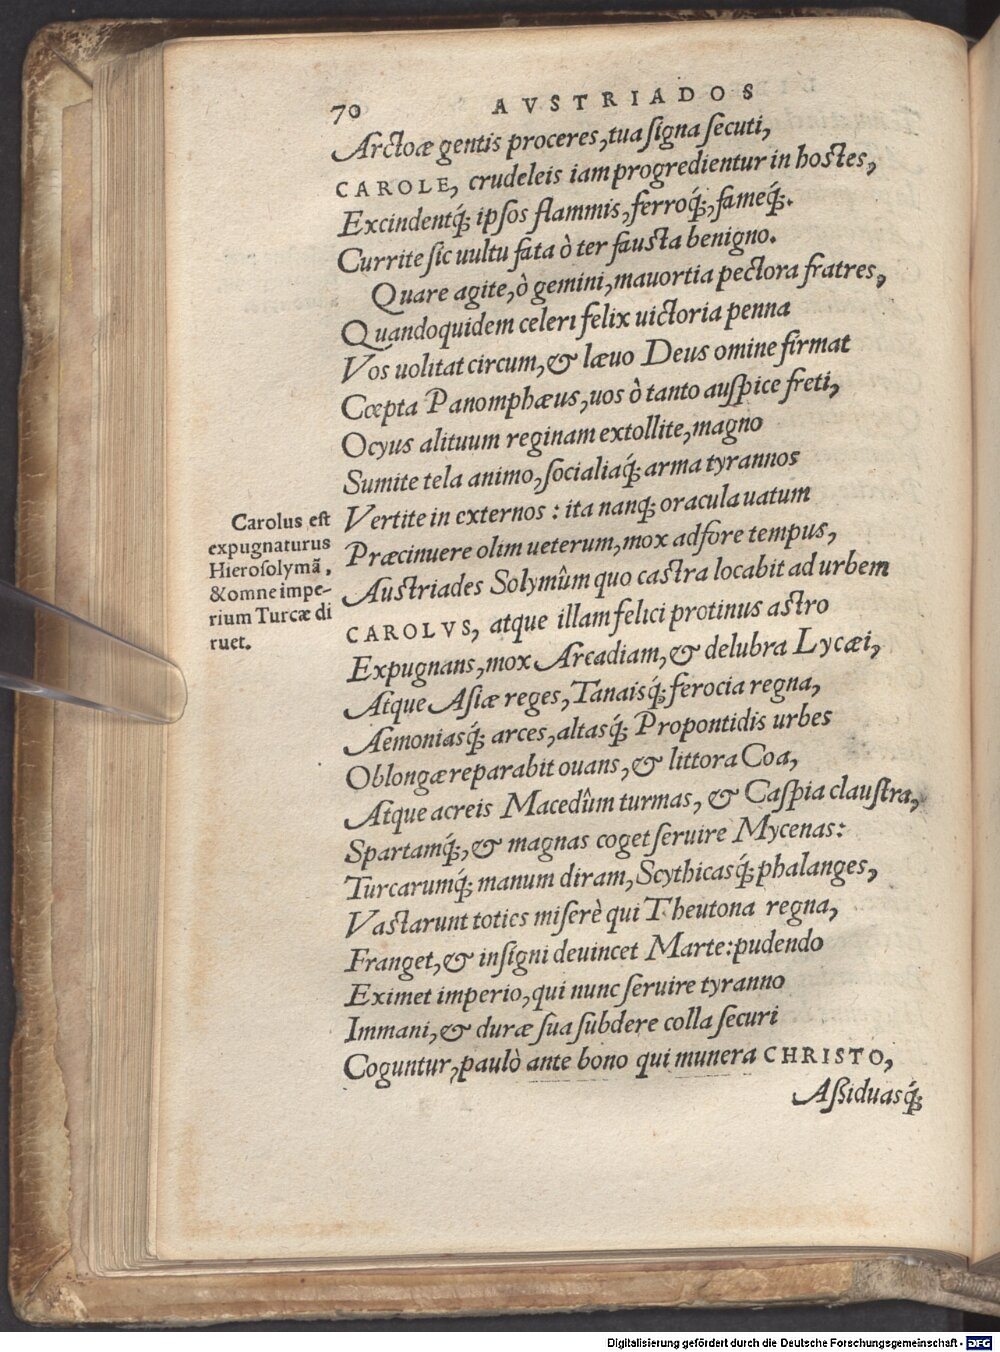 70 AVSTRIADOS
Arctoæ gentis proceres, tua signa secuti,
CAROLE, crudeleis iam progredientur in hostes,
Excindentq́; ipsos flammis, ferroq́;, fameq́;.
Currite sic uultu fata ò ter fausta benigno.
Quare agite, ò gemini, mauortia pectora fratres,
Quandoquidem celeri felix uictoria penna
Vos uolitat circum, & læuo Deus omine firmat
Cœpta Panomphæus, uos ò tanto auspice freti,
Ocyus alituum reginam extollite, magno
Sumite tela animo, socialiaq́; arma tyrannos
Vertite in externos : ita nanq; oracula uatum
Præcinuere olim ueterum, mox adfore tempus,
Austriades Solymûm quo castra locabit ad urbem
CAROLVS, atque illam felici protinus astro
Expugnans, mox Arcadiam, & delubra Lycæi,
Atque Asiæ reges, Tanaisq́; ferocia regna,
Aemoniasq́; arces, altasq́; Propontidis urbes
Oblongæ reparabit ouans, & littora Coa,
Atque acreis Macedûm turmas, & Caspia claustra,
Spartamq́;, & magnas coget seruire Mycenas:
Turcarumq́; manum diram, Scythicasq́; phalanges,
Vastarunt toties miserè qui Theutona regna,
Franget, & insigni deuincet Marte: pudendo
Eximet imperio, qui nunc seruire tyranno
Immani, & duræ sua subdere colla securi
Coguntur, paulò ante bono qui munera CHRISTO,
Aßiduasq́;
Carolus est
expugnaturus
Hierosolymã,
& omne impe-
rium Turcæ di
ruet.
Digitalisierung gefördert durch die Deutsche Forschungsgemeinschaft - DFG